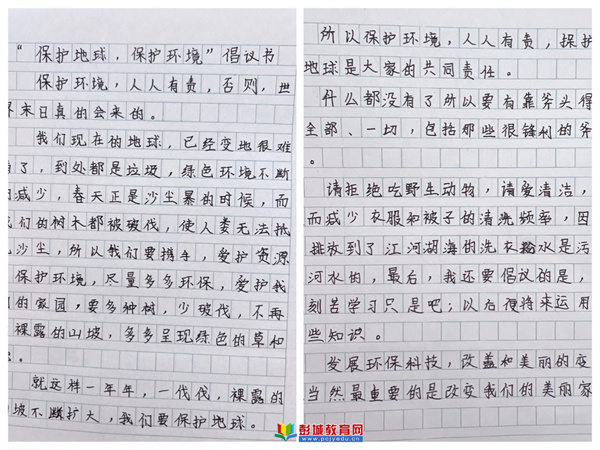 “保护地球,保护环境”倡议书
保护环境,人人有责,否则,世
界末日真的会来的。
我们现在的地球,已经变地很难
看了,到处都是垃圾,绿色环境不断
的减少,春天正是沙尘暴的时候,而
我们的树木都被砍伐,使人类无法抵
沙尘,所以我们要携手,爱护资源
保护环境,尽量多多环保,爱护我
们的家园,要多种树,少砍伐,不再
裸露的山坡,多多呈现绿色的草和
就这样一年年,一代代,裸露的
坡不断扩大,我们要保护地球。
所以保护环境,人人有责,保护
地球是大家的共同责任。
什么都没有了所以要有靠斧头得
全部、一切,包括那些很锋利的斧
。
请拒绝吃野生动物,请爱清洁,
而减少衣服和被子的清洗频率,因
排放到了江河湖海的洗衣水是污
河水的,最后,我还要倡议的是,
刻苦学习只是吧;以后便将来运用
些知识。
发展环保科技,改盖和美丽的变
当然最重要的是改变我们的美丽家
彭城教育网
www.pcjyedu.cn